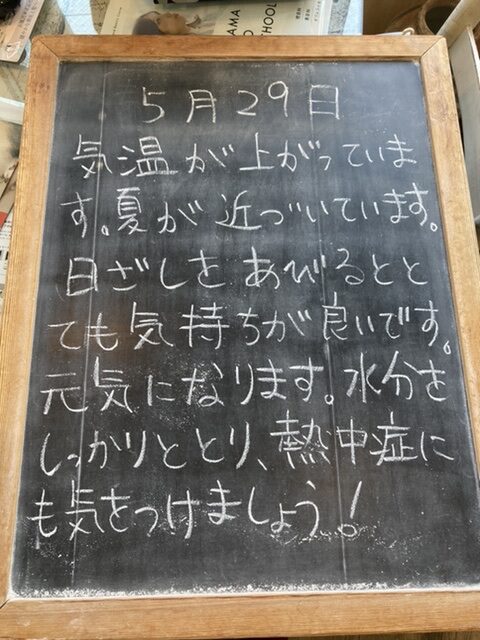 AMA
CHOOL
5月29日
気温が上がっていま
す。夏が近づいています。
日ざしをあびるとと
ても気持ちが良いです。
元気になります。水分を
しっかりととり、熱中症に
も気をつけましょう!